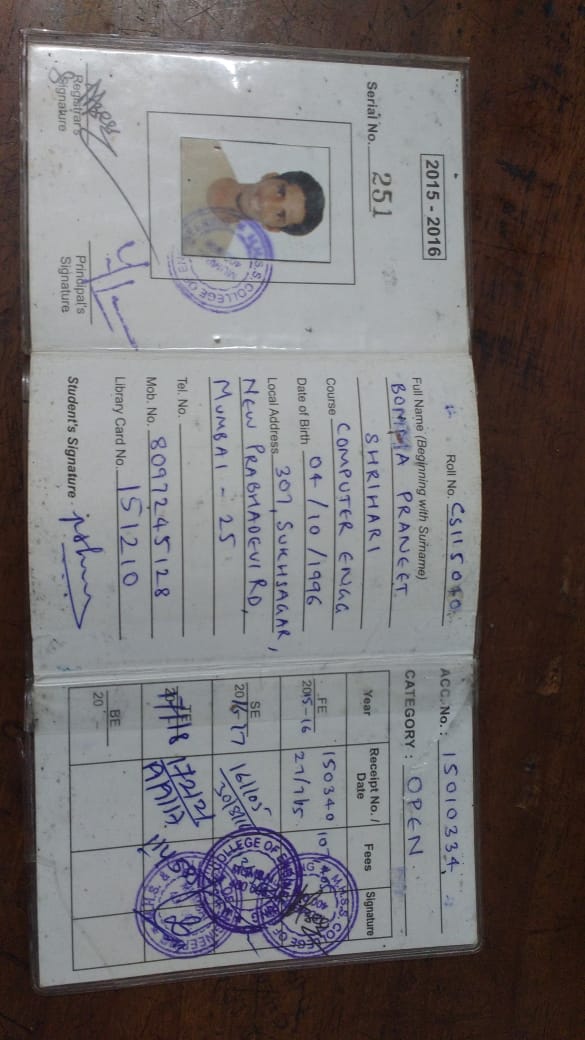 2015 - 2016
Serial No. 251
Registrar's
Signature
Principal's
Signature
Roll No. CS115070
Full Name (Beginning with Surname)
BOMMA PRANEET
SHRIHARI
Course COMPUTER ENGG
Date of Birth 04/10/1996
Local Address 307, SUKHSAGAR,
NEW PRABHADEVI RD,
MUMBAI - 25
Tel. No.
Mob. No. 8097245128
Library Card No. 151210
Student's Signature
ACC. No.: 15010334
CATEGORY: OPEN
Year Receipt No. / Date Fees Signature
FE 2015-16 150340 27/7/15
SE 2016-17 30/8/16
TE 17/18
BE 20